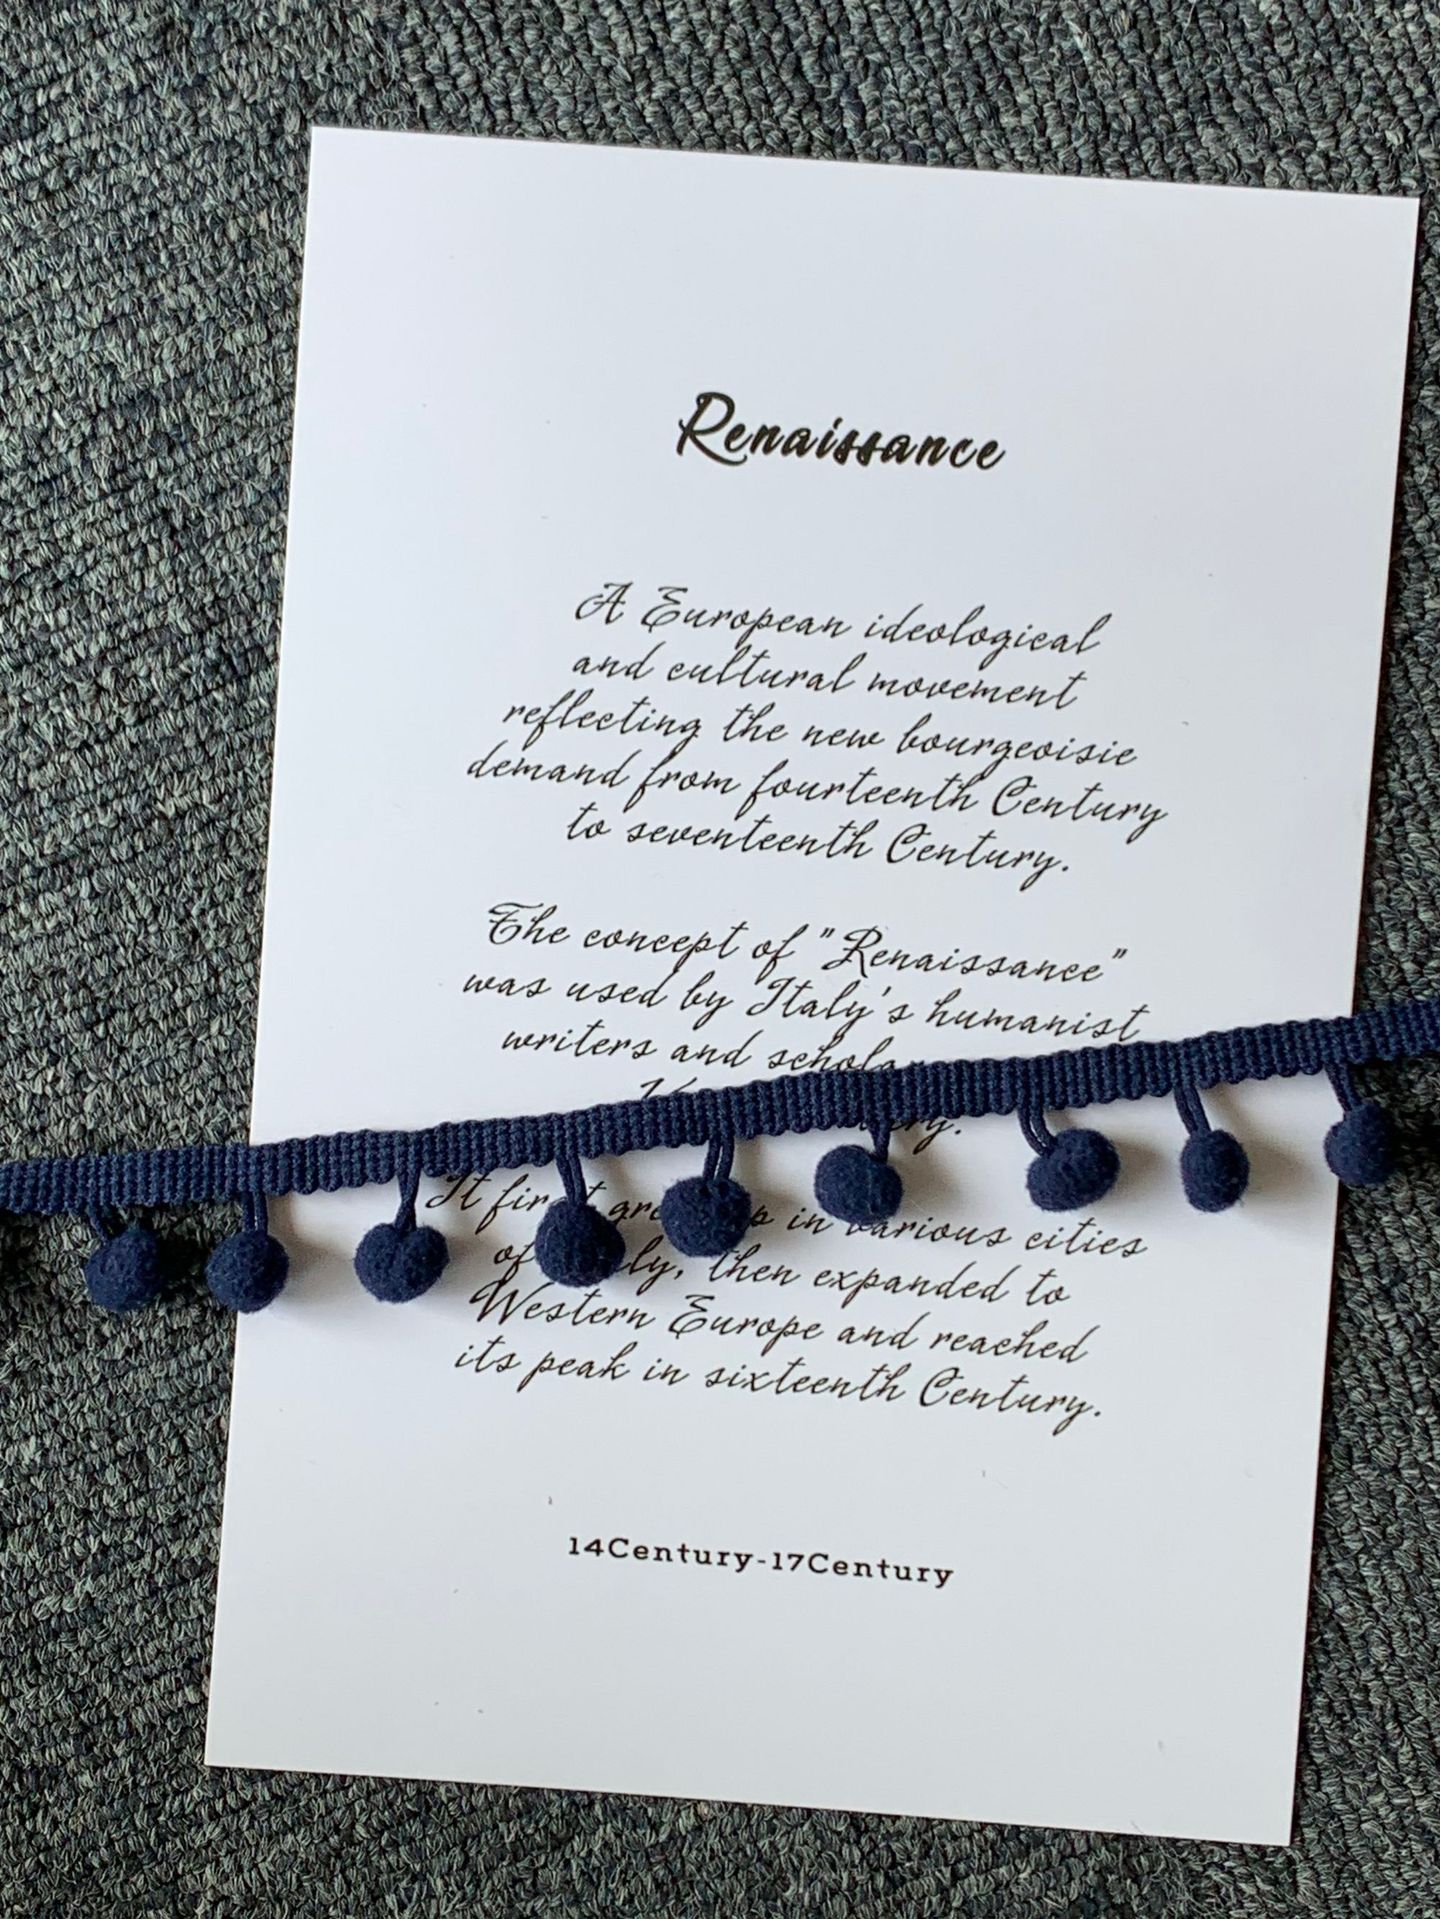 Renaissance
A European ideological
and cultural movement
reflecting the new bourgeoisie
demand from fourteenth Century
to seventeenth Century.
The concept of "Renaissance"
was used by Italy's humanist
writers and
It in various cities
then expanded to
Western Europe and reached
its peak in sixteenth Century.
14Century-17Century